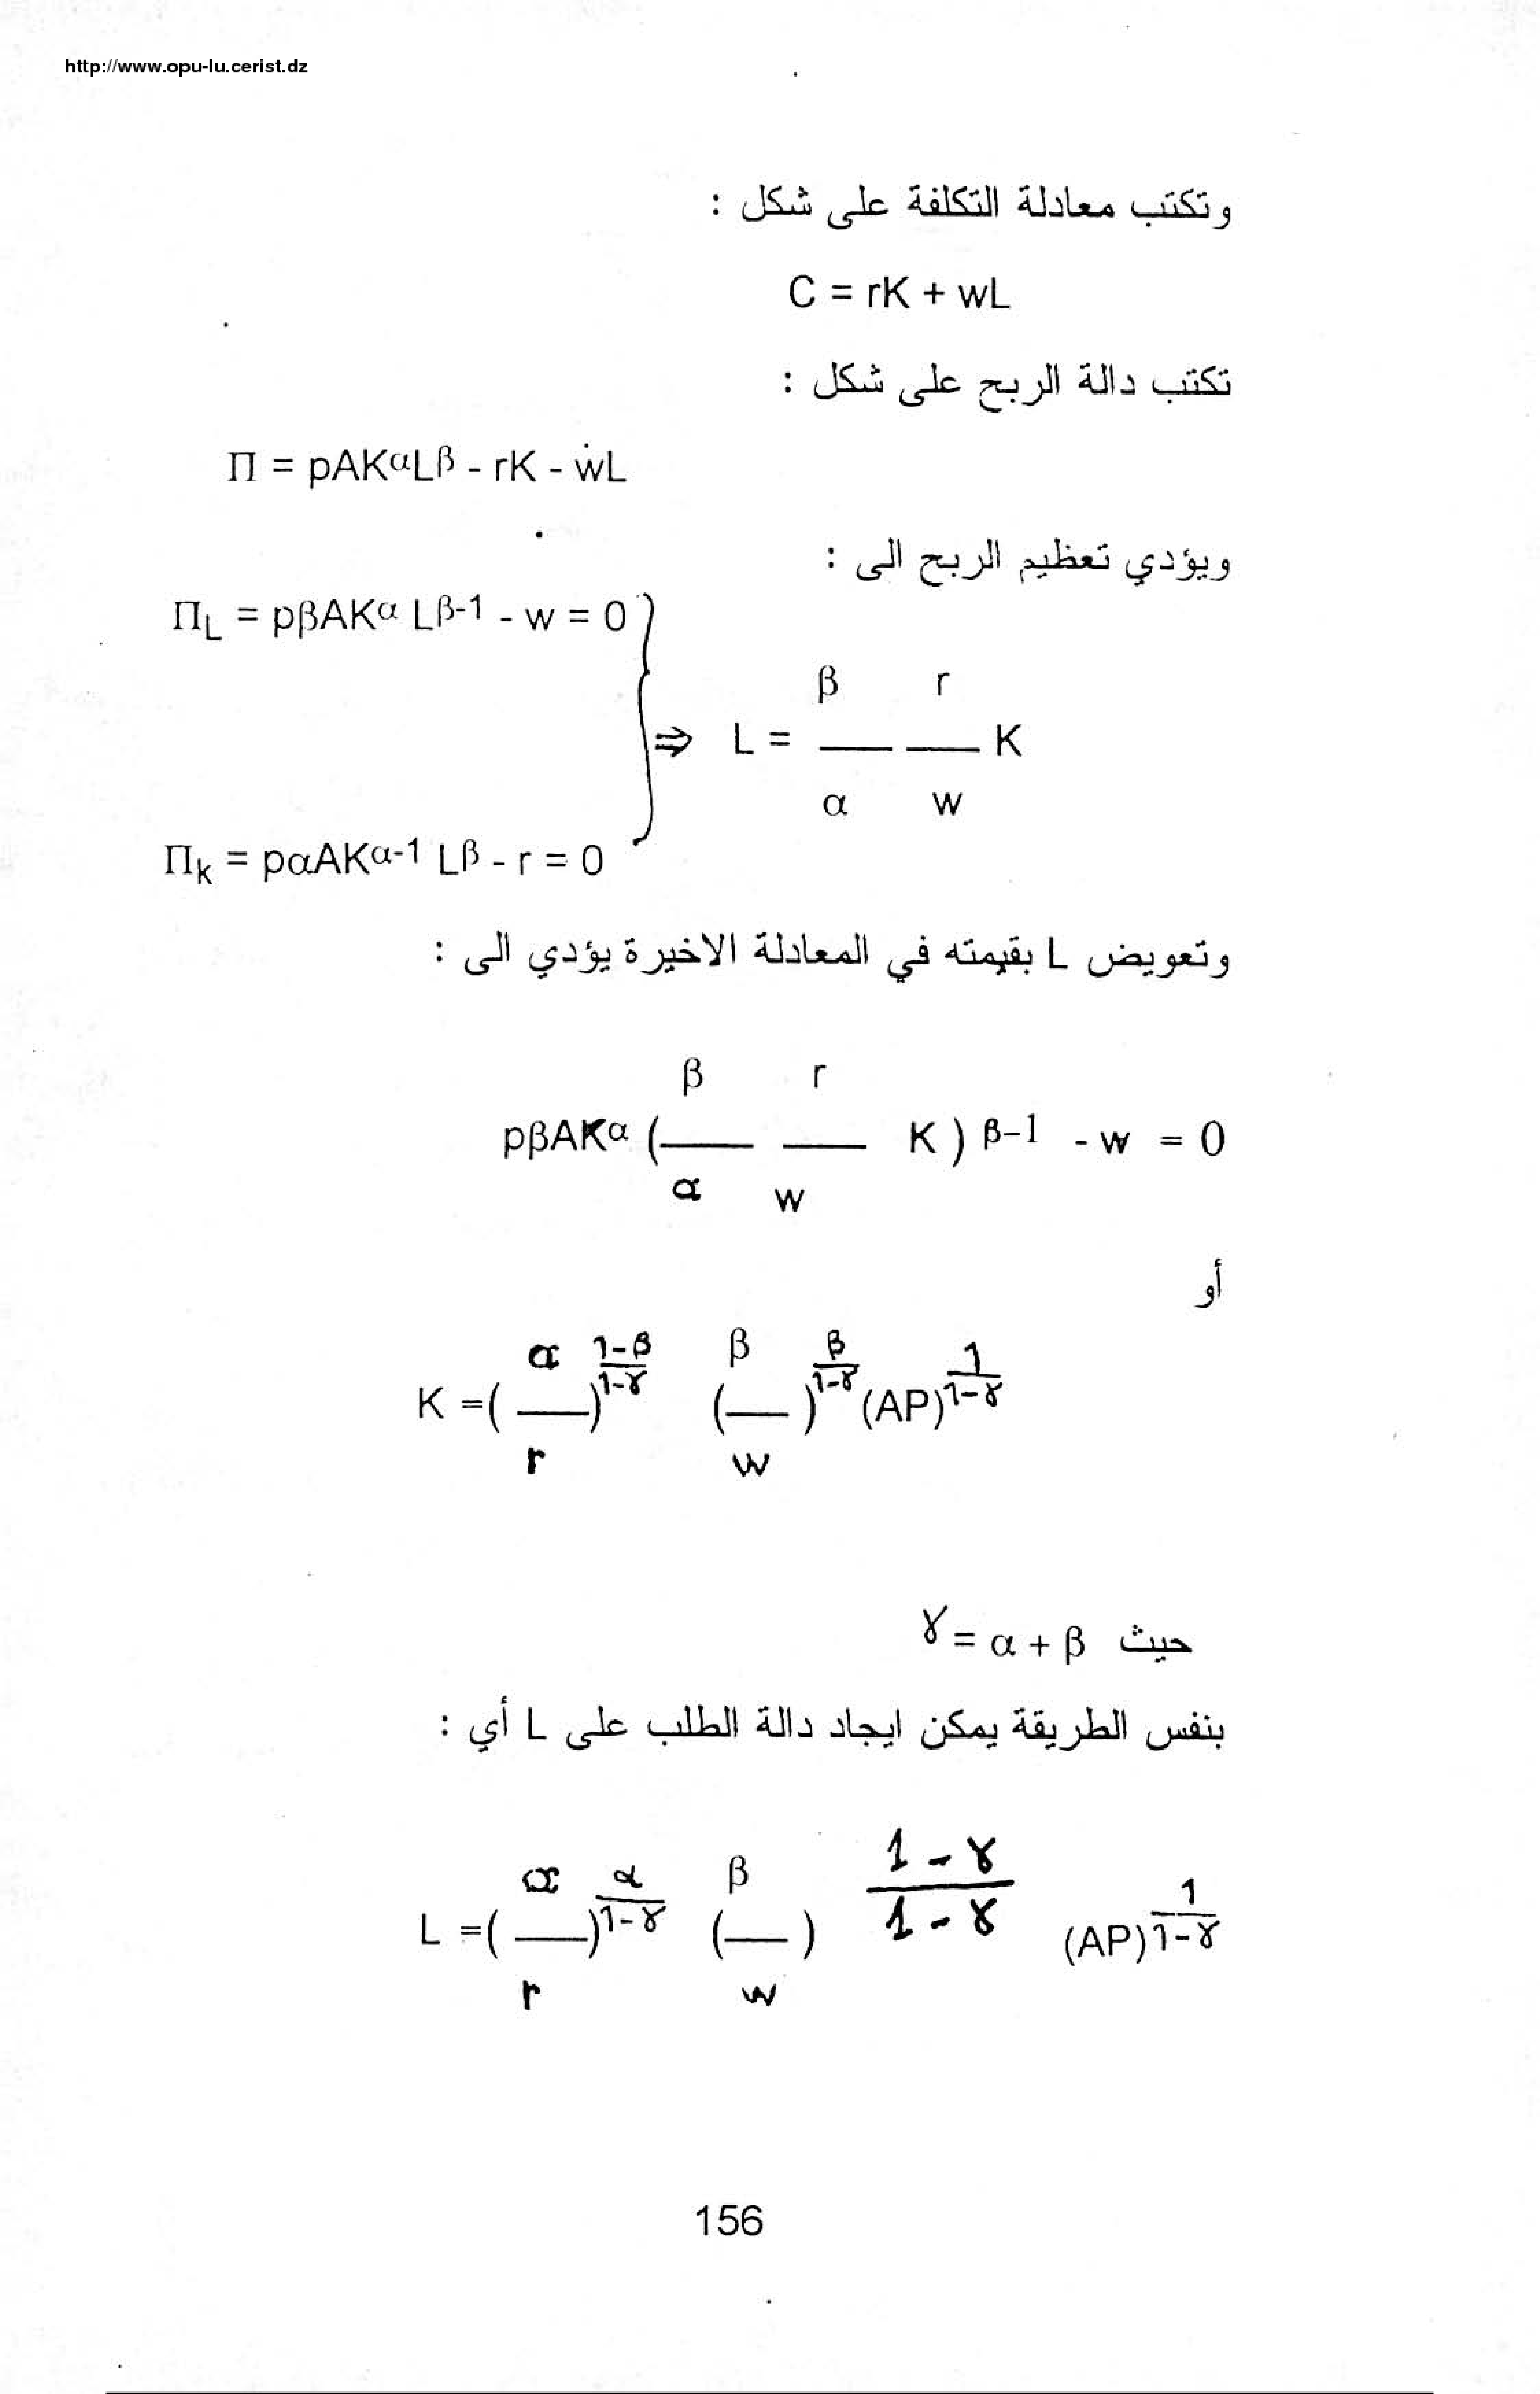 http://www.opu-lu.cerist.dz
وتكتب معادلة التكلفة على شكل :
C = rK + wL
تكتب دالة الربح على شكل :
Π = pAK^α L^β - rK - wL
ويؤدي تعظيم الربح الى :
Π_L = pβAK^α L^(β-1) - w = 0
⇒ L = (β/α) (r/w) K
Π_k = pαAK^(α-1) L^β - r = 0
وتعويض L بقيمته في المعادلة الاخيرة يؤدي الى :
pβAK^α ((β/α) (r/w) K)^(β-1) - w = 0
أو
K = (α/r)^((1-β)/(1-γ)) (β/w)^(β/(1-γ)) (AP)^(1/(1-γ))
حيث γ = α + β
بنفس الطريقة يمكن ايجاد دالة الطلب على L أي :
L = (α/r)^(α/(1-γ)) (β/w)^((1-γ)/(1-γ)) (AP)^(1/(1-γ))
156